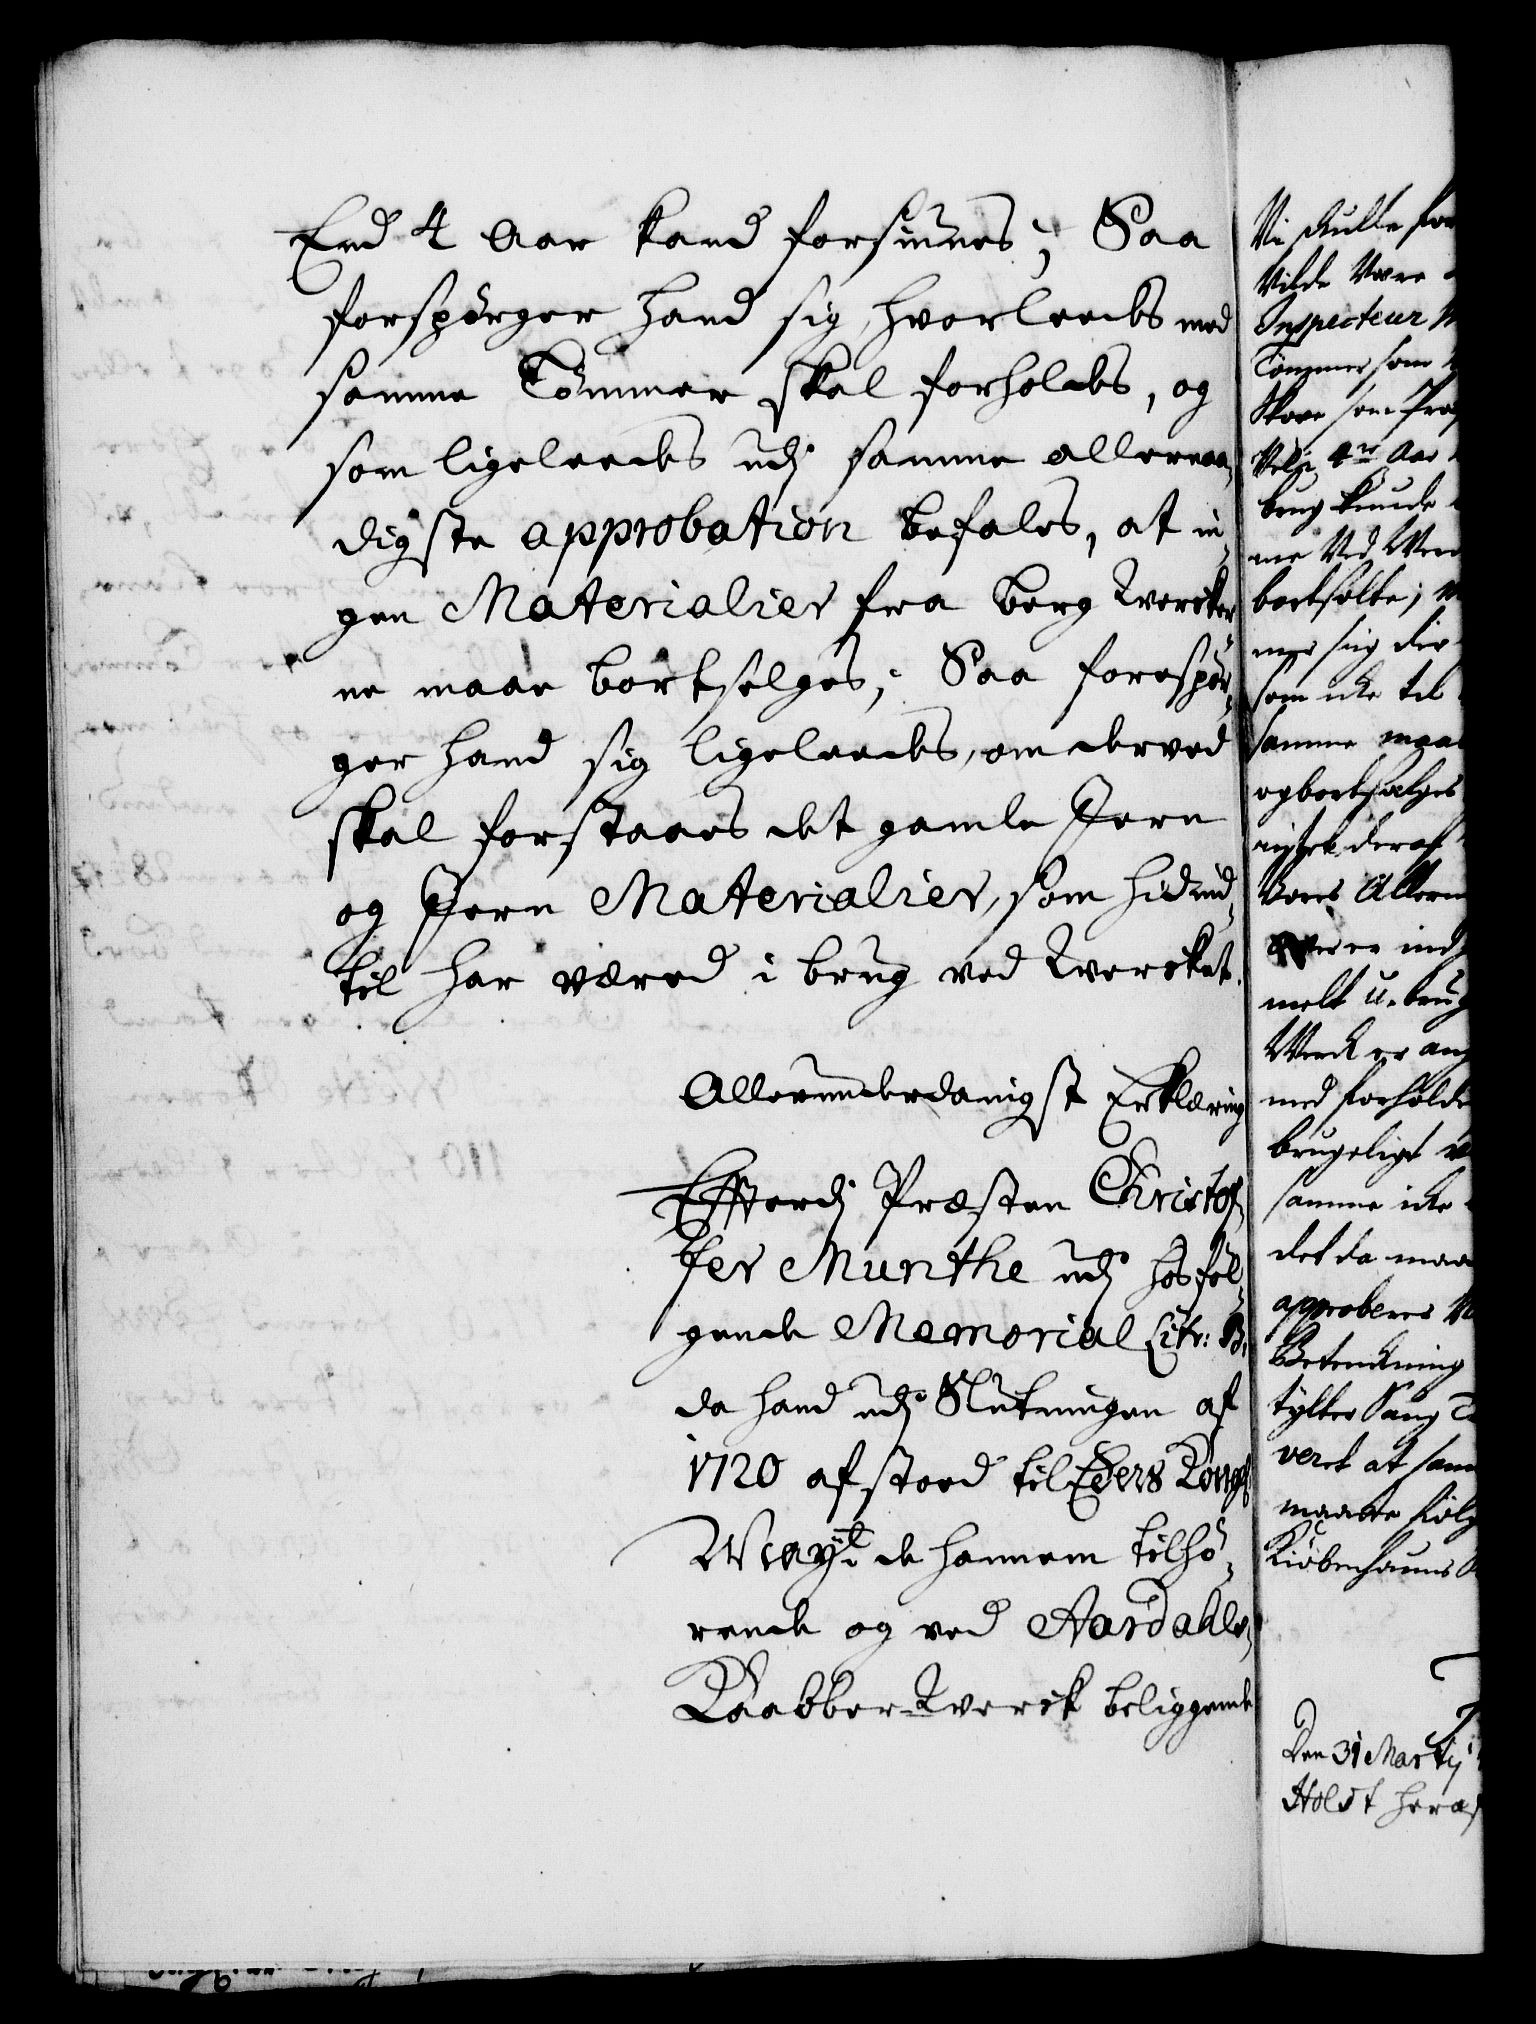 End 4 Aar kand forsiunes; Saa
forspörger hand sig, hvorleedes med
samme Tömmer skal forholdes, og
som ligeleedes udj samme allernaa¬
digste approbation befales, at in¬
gen Materialier fra berg Wercker
ne maae bortselges; Saa forespör¬
ger hand sig ligeleedes, om derved
skal forstaaes det gamle Jern
og Jern Materialier, som hidind¬
til har været i brug ved Wercket.
Allerunderdanigst Erklæring
Efterdj Præsten Christof¬
fer Munthe udj hosföl¬
gende Memorial Litr: B.
da hand udj Slutningen af
1720 afstoed til Eders Kongl
May:t de hannem tilhö¬
rende og ved Aardahls
Kaabber-Werck beliggende
Vi skulle for
Vilde Være
Inspecteur
Tömmer som
Skove som Præ
Velj 4re Aar
brug kunde
me Ved Wer
bortsolte;
mer sig der
som icke til
samme maa
og bortsælges
deraf
Vores Allern
melt U-brug
Werck er an
med forholde
brugeligt
samme icke
det da maa
approberes
Betenckning
tylter Saug
verck at sam
maatte fölg
Kiöbenhauns
Den 31 Martij
Holst heraf